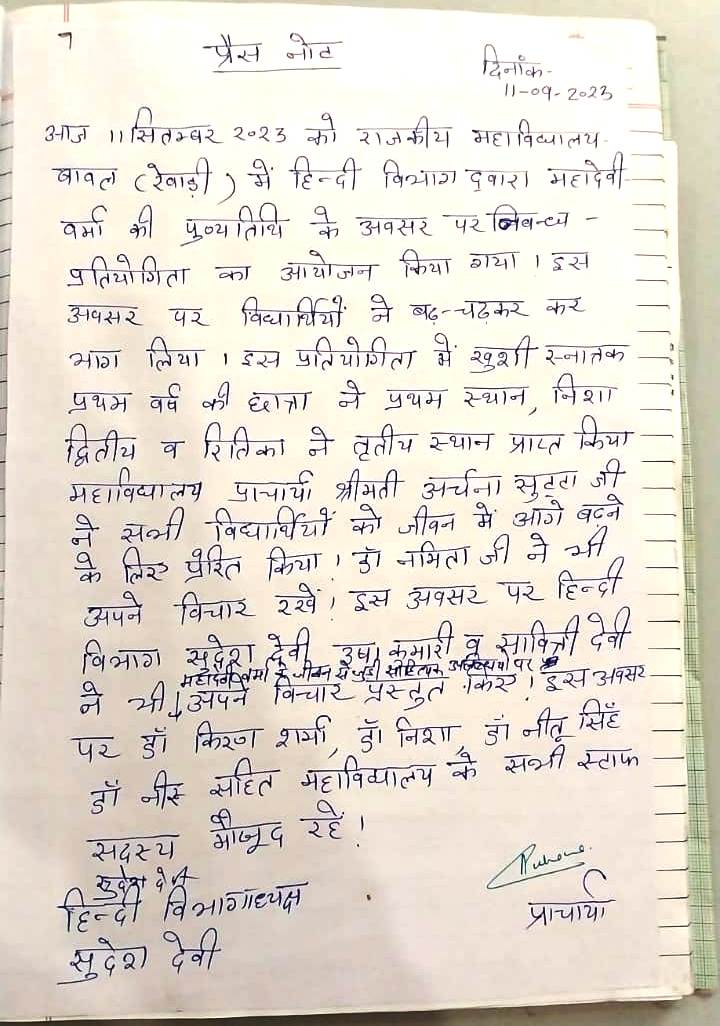 7
प्रैस नोट
दिनांक-
11-09-2023
आज 11 सितम्बर 2023 को राजकीय महाविद्यालय-
बावल (रेवाड़ी) में हिन्दी विभाग द्वारा महादेवी
वर्मा की पुण्यतिथि के अवसर पर निबन्ध -
प्रतियोगिता का आयोजन किया गया । इस
अवसर पर विद्यार्थियों ने बढ़-चढ़कर कर
भाग लिया । इस प्रतियोगिता में खुशी स्नातक
प्रथम वर्ष की छात्रा ने प्रथम स्थान, निशा
द्वितीय व रितिका ने तृतीय स्थान प्राप्त किया
महाविद्यालय प्राचार्या श्रीमती अर्चना सुहटा जी
ने सभी विद्यार्थियों को जीवन में आगे बढ़ने
के लिए प्रेरित किया । डॉ नमिता जी ने भी
अपने विचार रखें । इस अवसर पर हिन्दी
विभाग सुदेश देवी उषा कुमारी व सावित्री देवी
महादेवी वर्मा के जीवन से जुड़ी साहित्यिक पर
ने भी अपने विचार प्रस्तुत किए । इस अवसर
पर डॉ किरण शर्मा, डॉ निशा, डॉ नीतू सिंह
डॉ नीरू सहित महाविद्यालय के सभी स्टाफ
सदस्य मौजूद रहें ।
सुदेश देवी
हिन्दी विभागाध्यक्ष
प्राचार्या
सुदेश देवी